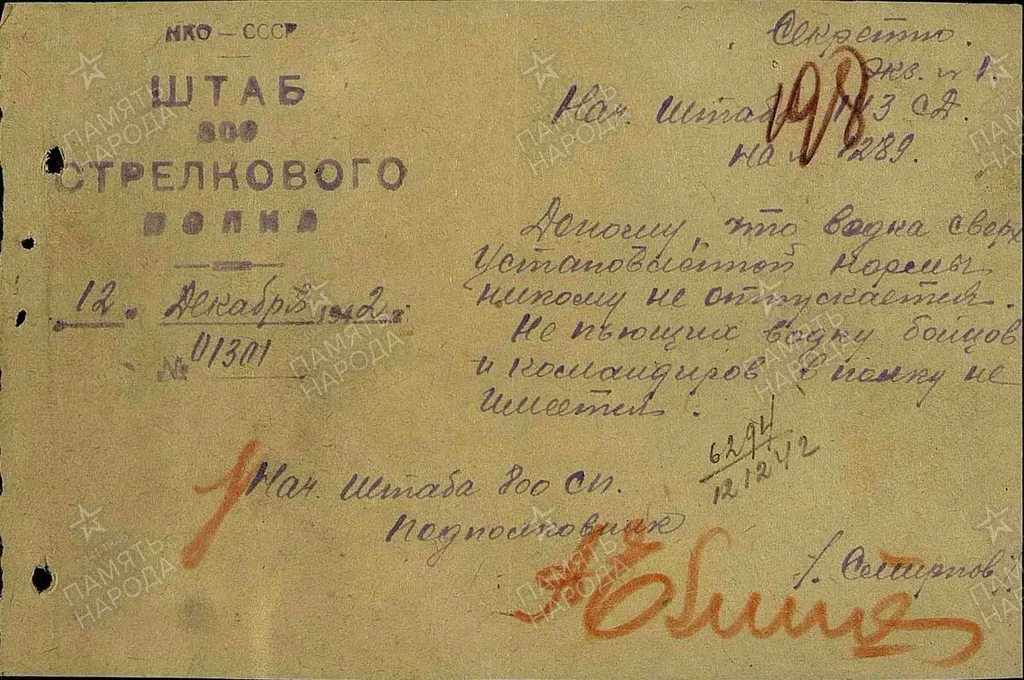 НКО — СССР
ШТАБ
800
СТРЕЛКОВОГО
ПОЛКА
12. Декабря 1942 г.
№ 01301
Секретно.
Экз. № 1.
198
Нач. Штаба 143 СД.
на № 1289.
Доношу, что водка сверх
установленной нормы
никому не отпускается.
Не пьющих водку бойцов
и командиров в полку не
имеется.
6294
12 12 42
Нач. Штаба 800 СП.
Подполковник
/. Смирнов./
ПАМЯТЬ
НАРОДА